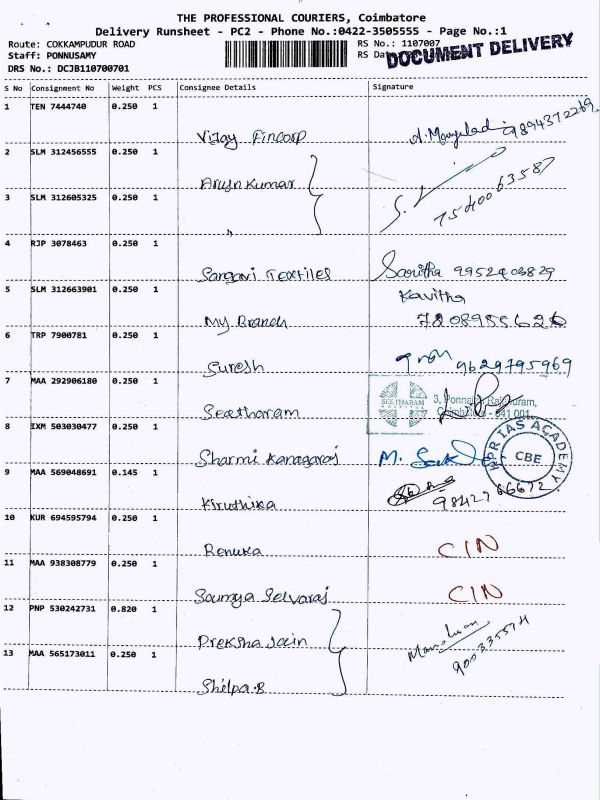 THE PROFESSIONAL COURIERS, Coimbatore
Delivery Runsheet - PC2 - Phone No.:0422-3505555 - Page No.:1
Route: COKKAMPUDUR ROAD
RS No.: 1107007
Staff: PONNUSAMY
RS Da
DOCUMENT DELIVERY
DRS No.: DCJB110700701
S No Consignment No Weight PCS Consignee Details Signature
1 TEN 7444740 0.250 1
Vijay Fincorp 9894372269
2 SLM 312456555 0.250 1
Arun Kumar
3 SLM 312605325 0.250 1
7540063587
"
4 RJP 3078463 0.250 1
Textiles Saritha
5 SLM 312663901 0.250 1
Kavitha
My Branch
6 TRP 7900781 0.250 1
Suresh 9629795969
7 MAA 292906180 0.250 1
SEETHARAM
3, Ponnaiah Raja Puram,
Coimbatore - 641 001
Seetharam
8 IXM 503030477 0.250 1
IAS ACADEMY
CBE
Sharmi Kanagaraj M.
9 MAA 569048691 0.145 1
Kiruthika 9842766672
10 KUR 694595794 0.250 1
Renuka CIN
11 MAA 938308779 0.250 1
Soumya Selvaraj CIN
12 PNP 530242731 0.820 1
Preksha Jain
13 MAA 565173011 0.250 1
Shilpa.B